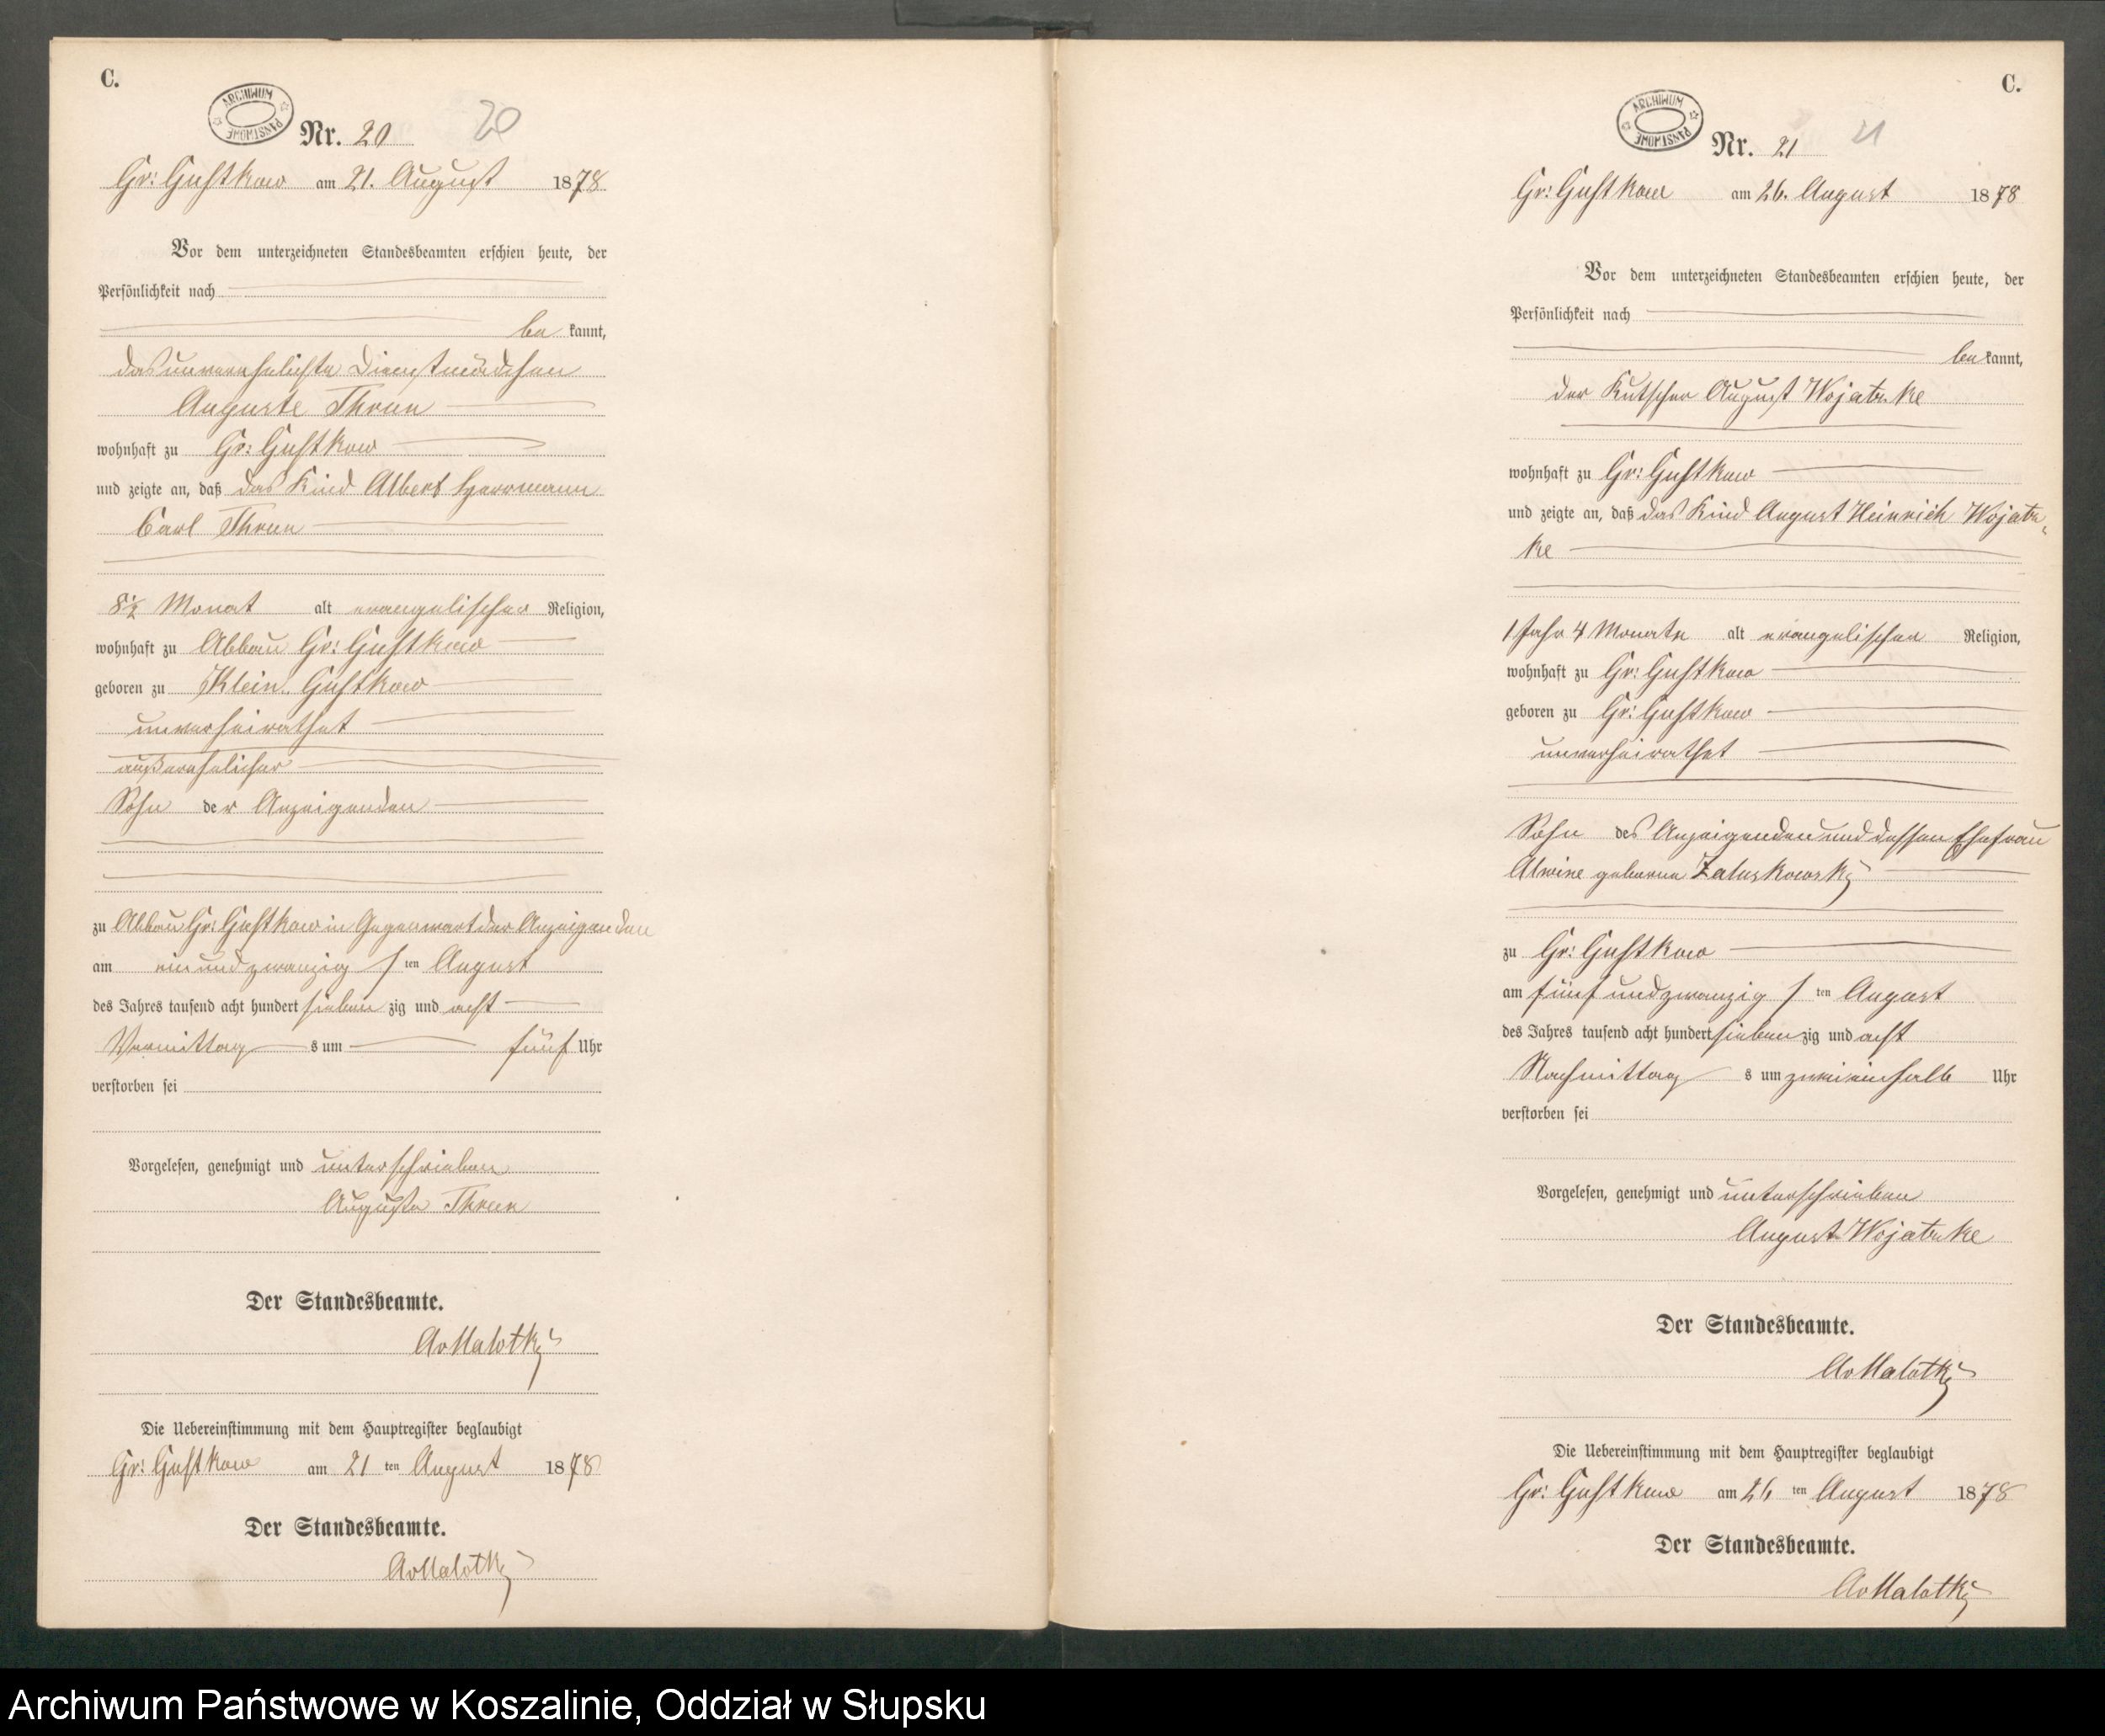 C.
ARCHIWUM PAŃSTWOWE
Nr. 20
20
Gr: Gustkow am 21. August 1878
Vor dem unterzeichneten Standesbeamten erschien heute, der
Persönlichkeit nach
be kannt,
das unverehelichte Dienstmädchen
Auguste Thrun
wohnhaft zu Gr: Gustkow
und zeigte an, daß das Kind Albert Herrmann
Carl Thrun
8½ Monat alt evangelischer Religion,
wohnhaft zu Abbau Gr: Gustkow
geboren zu Klein Gustkow
unverheirathet
außerehelicher
Sohn der Anzeigenden
zu Abbau Gr: Gustkow in Gegenwart der Anzeigenden
am ein und zwanzigsten August
des Jahres tausend acht hundert sieben zig und acht
Vormittags um fünf Uhr
verstorben sei
Vorgelesen, genehmigt und unterschrieben
Auguste Thrun
Der Standesbeamte.
AvMalotky
Die Uebereinstimmung mit dem Hauptregister beglaubigt
Gr: Gustkow am 21 ten August 1878
Der Standesbeamte.
AvMalotky
C.
ARCHIWUM PAŃSTWOWE
Nr. 21
21
Gr: Gustkow am 26. August 1878
Vor dem unterzeichneten Standesbeamten erschien heute, der
Persönlichkeit nach
be kannt,
der Kutscher August Wojatzke
wohnhaft zu Gr: Gustkow
und zeigte an, daß das Kind August Heinrich Wojatz-
ke
1 Jahr 4 Monate alt evangelischer Religion,
wohnhaft zu Gr: Gustkow
geboren zu Gr: Gustkow
unverheirathet
Sohn des Anzeigenden und dessen Ehefrau
Alwine geborne Zatuskowsky
zu Gr: Gustkow
am fünf und zwanzigsten August
des Jahres tausend acht hundert sieben zig und acht
Nachmittags um zweieinhalb Uhr
verstorben sei
Vorgelesen, genehmigt und unterschrieben
August Wojatzke
Der Standesbeamte.
AvMalotky
Die Uebereinstimmung mit dem Hauptregister beglaubigt
Gr: Gustkow am 26 ten August 1878
Der Standesbeamte.
AvMalotky
Archiwum Państwowe w Koszalinie, Oddział w Słupsku